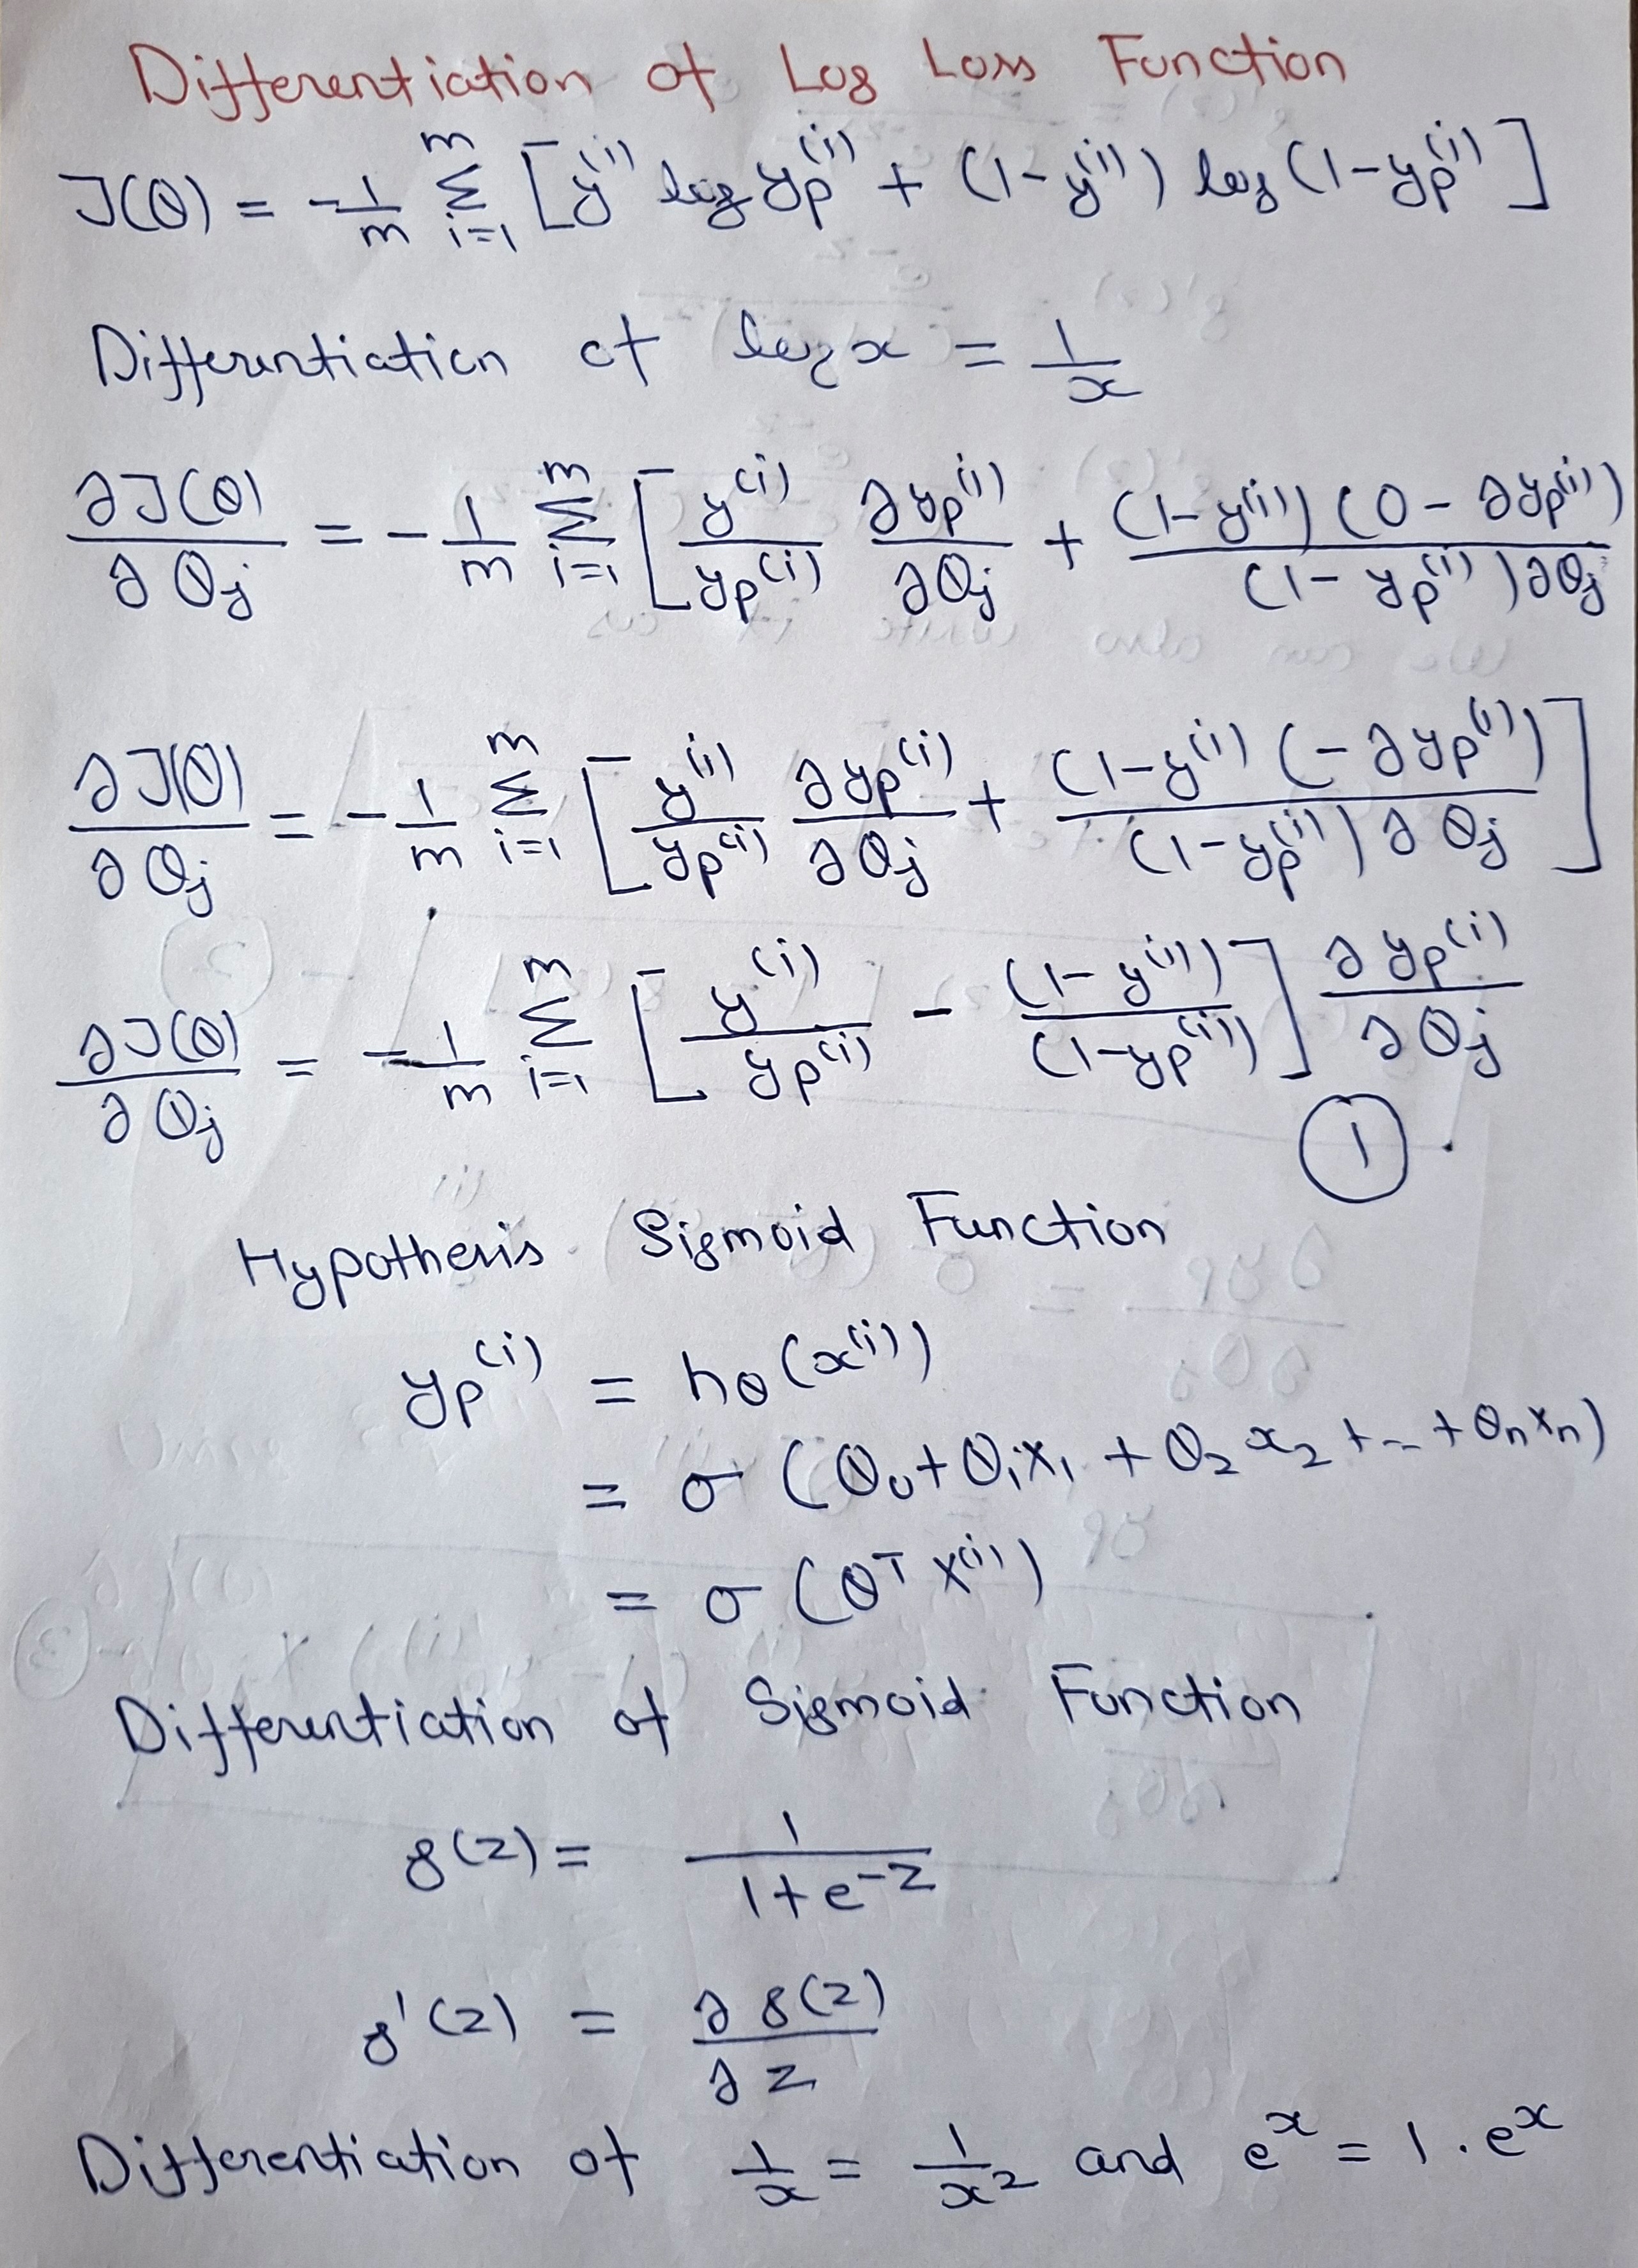 Differentiation of Log Loss Function
J(θ) = -1/m Σ_{i=1}^{m} [y^{(i)} log yp^{(i)} + (1-y^{(i)}) log (1-yp^{(i)}]
Differentiation of log x = 1/x
∂J(θ)/∂θj = -1/m Σ_{i=1}^{m} [y^{(i)}/yp^{(i)} ∂yp^{(i)}/∂θj + (1-y^{(i)}) (0-∂yp^{(i)})/(1-yp^{(i)})∂θj
∂J(θ)/∂θj = -1/m Σ_{i=1}^{m} [y^{(i)}/yp^{(i)} ∂yp^{(i)}/∂θj + (1-y^{(i)} (-∂yp^{(i)})/(1-yp^{(i)})∂θj]
∂J(θ)/∂θj = -1/m Σ_{i=1}^{m} [y^{(i)}/yp^{(i)} - (1-y^{(i)})/(1-yp^{(i)})] ∂yp^{(i)}/∂θj
1
Hypothesis Sigmoid Function
yp^{(i)} = hθ(x^{(i)})
= σ (θ0+θ1x1 + θ2x2 + -- + θnxn)
= σ (θ^T x^{(i)})
Differentiation of Sigmoid Function
g(z) = 1/1+e^{-z}
g'(z) = ∂g(z)/∂z
Differentiation of 1/x = 1/x^2 and e^x = 1.e^x